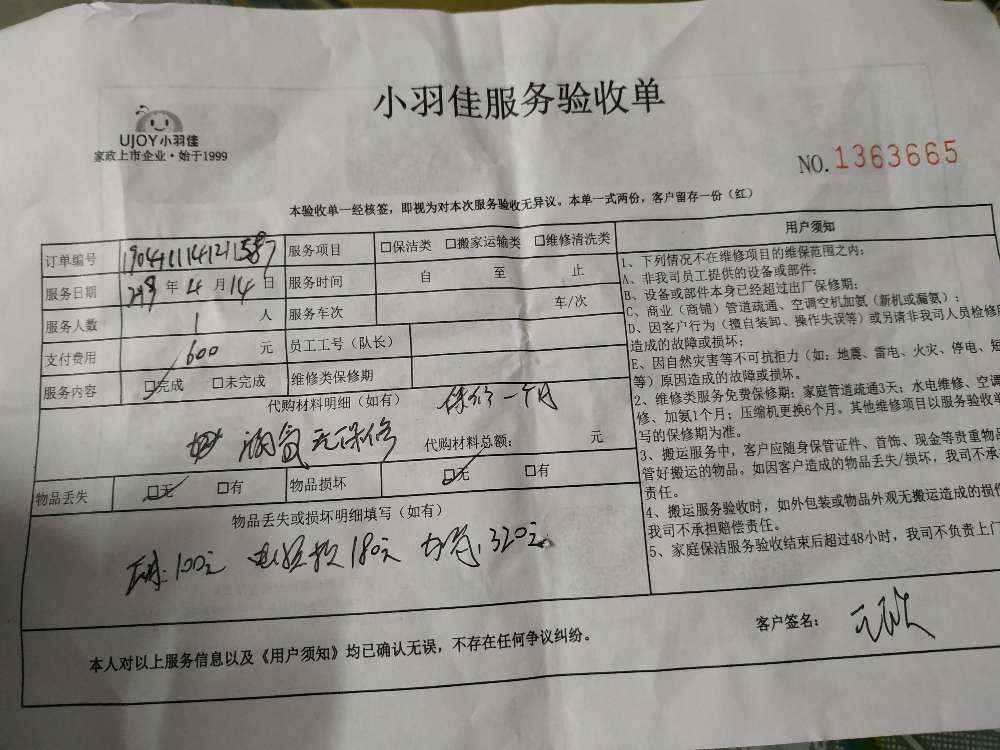 小羽佳服务验收单
UJOY小羽佳
家政上市企业·始于1999
NO.1363665
本验收单一经核签，即视为对本次服务验收无异议。本单一式两份，客户留存一份（红）
订单编号
服务项目 □保洁类 □搬家运输类 □维修清洗类
服务日期 年 4 月 14 日 服务时间 自 至 止
服务人数 1 人 服务车次 车/次
支付费用 600 元 员工工号（队长）
服务内容 □完成 □未完成 维修类保修期
代购材料明细（如有） 保修一个月
漏氨无保修 代购材料总额： 元
物品丢失 □无 □有 物品损坏 □无 □有
物品丢失或损坏明细填写（如有）
100元 180元 320元
用户须知
1、下列情况不在维修项目的维保范围之内：
A、非我司员工提供的设备或部件；
B、设备或部件本身已经超过出厂保修期；
C、商业（商铺）管道疏通、空调空机加氨（新机或漏氨）；
D、因客户行为（擅自装卸、操作失误等）或另请非我司人员检修
造成的故障或损坏；
E、因自然灾害等不可抗拒力（如：地震、雷电、火灾、停电、短
等）原因造成的故障或损坏。
2、维修类服务免费保修期：家庭管道疏通3天；水电维修、空
修、加氨1个月；压缩机更换6个月。其他维修项目以服务验收单
写的保修期为准。
3、搬运服务中，客户应随身保管证件、首饰、现金等贵重物品
管好搬运的物品。如因客户造成的物品丢失/损坏，我司不承
责任。
4、搬运服务验收时，如外包装或物品外观无搬运造成的损
我司不承担赔偿责任。
5、家庭保洁服务验收结束后超过48小时，我司不负责上门
本人对以上服务信息以及《用户须知》均已确认无误，不存在任何争议纠纷。
客户签名：